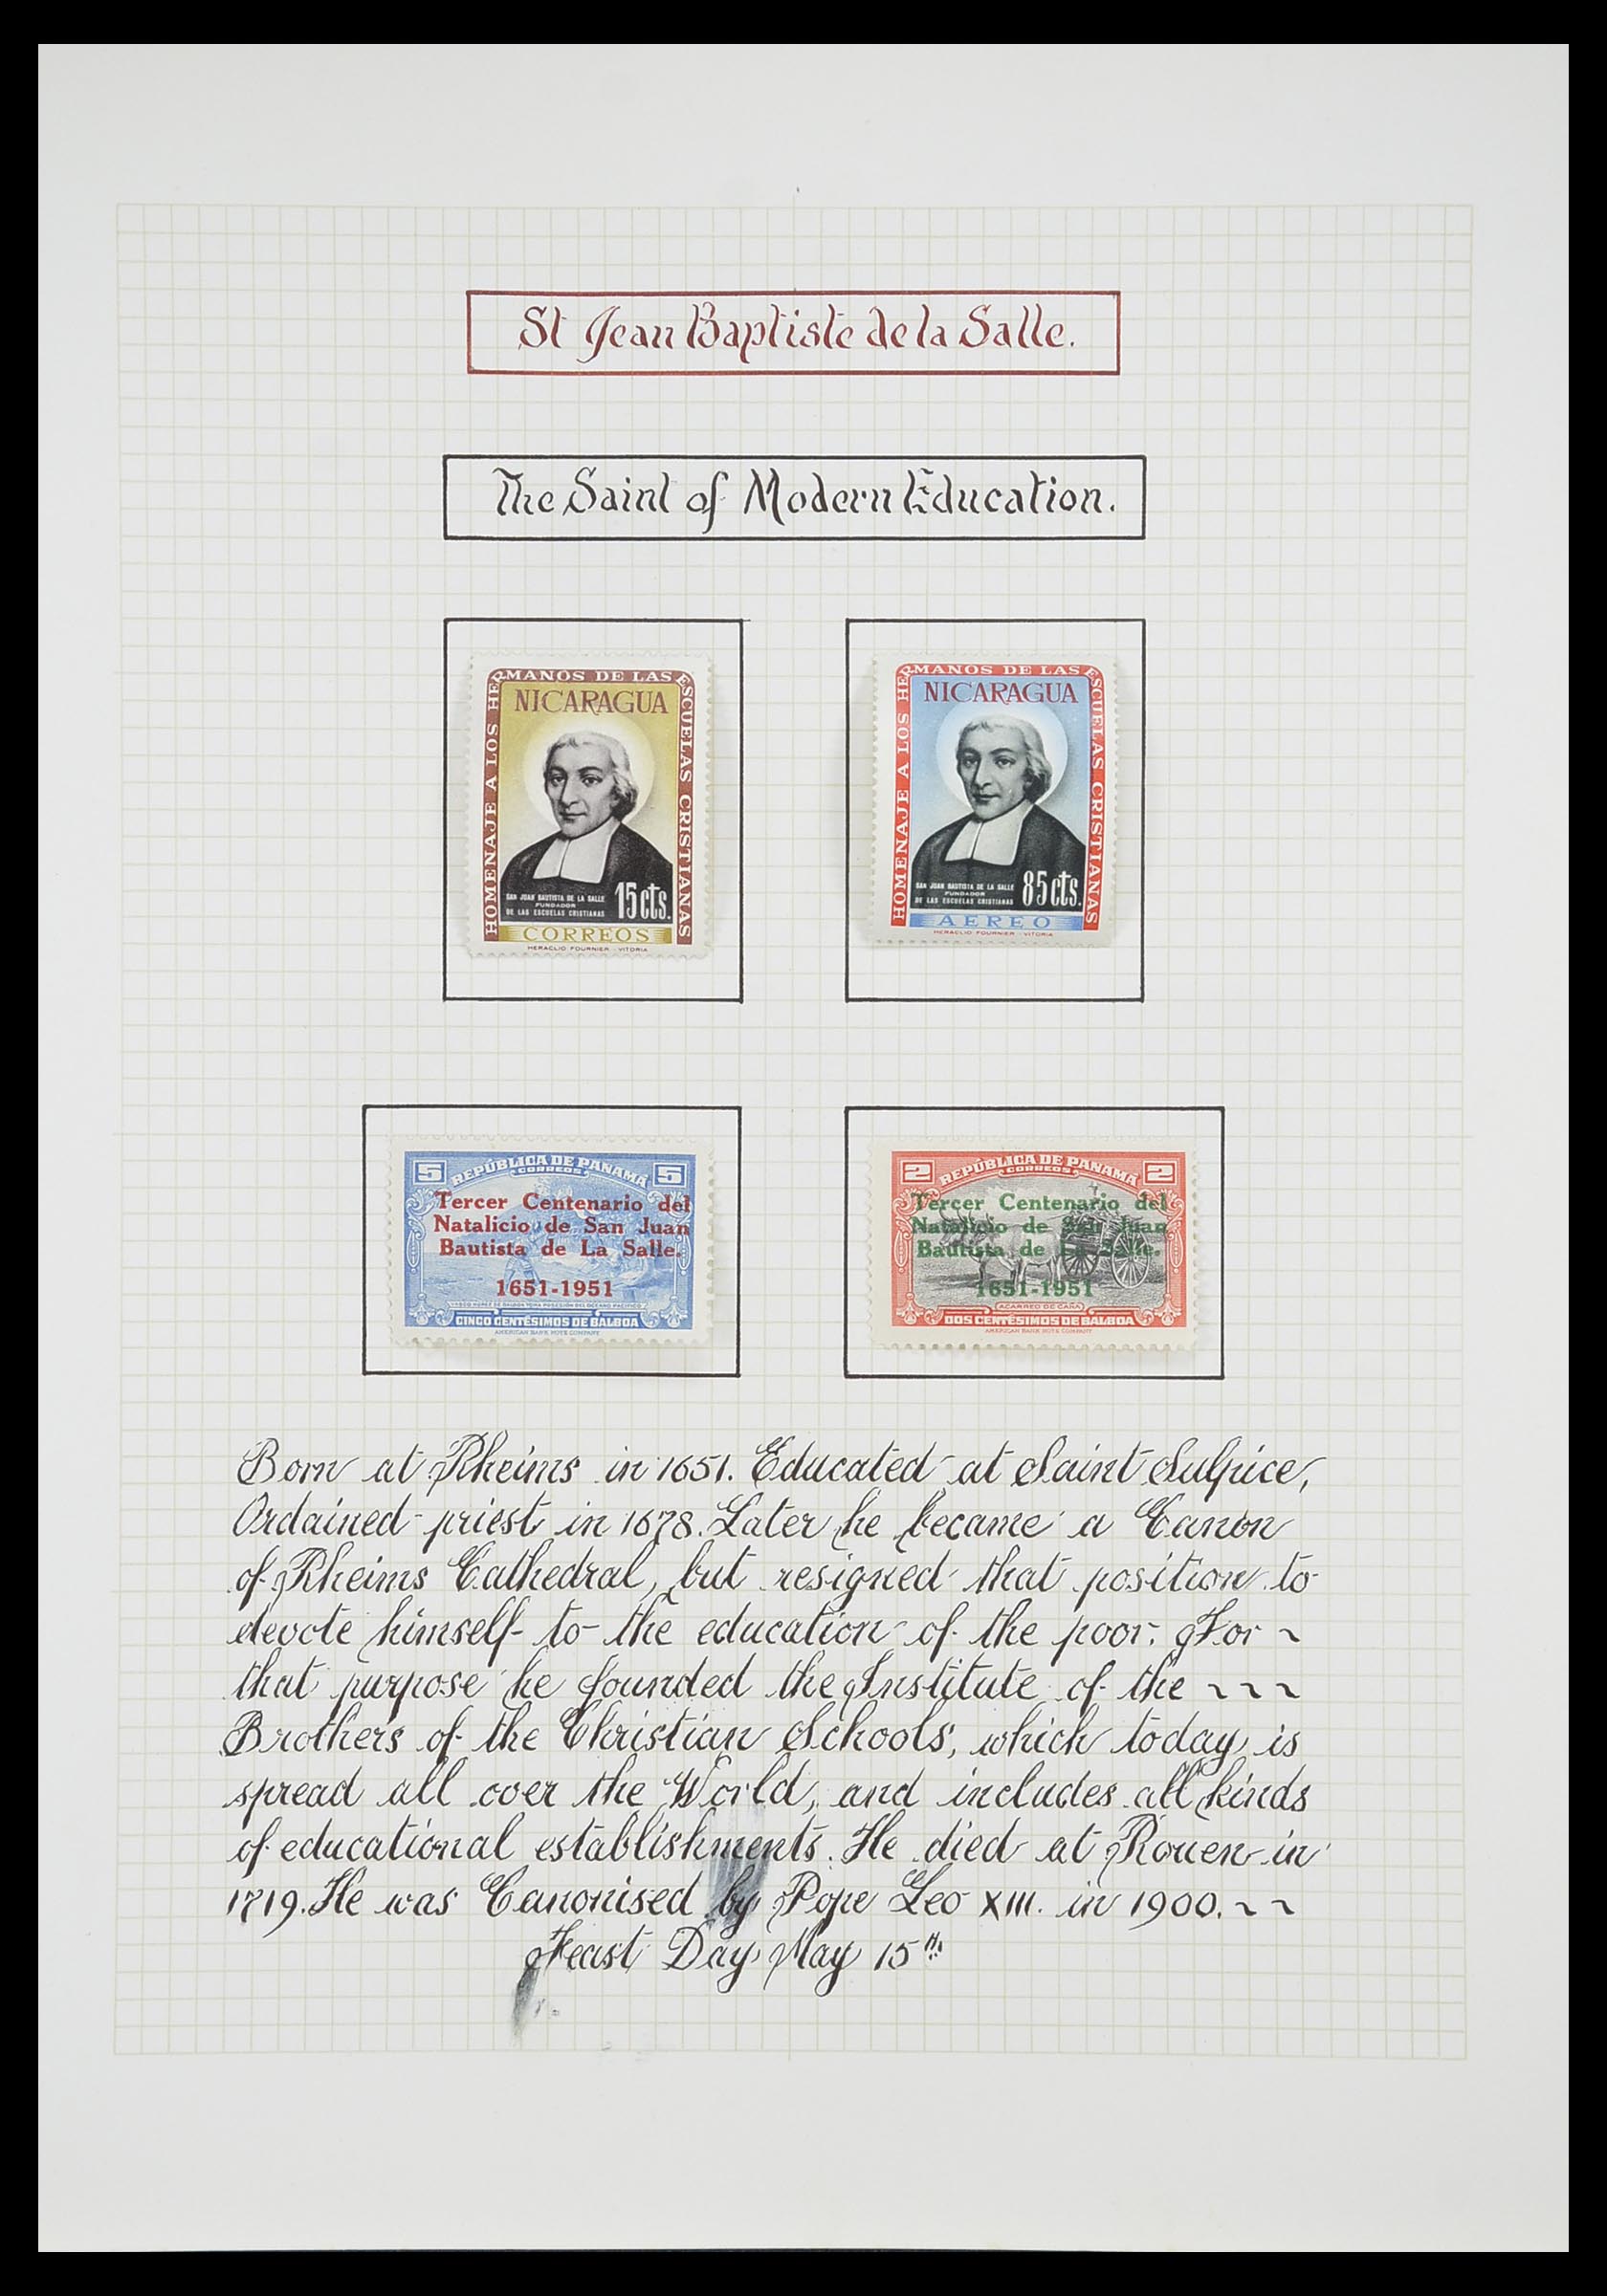 St Jean Baptiste de la Salle.
The Saint of Modern Education.
HOMENAJE A LOS HERMANOS DE LAS ESCUELAS CRISTIANAS
NICARAGUA
SAN JUAN BAUTISTA DE LA SALLE
FUNDADOR
DE LAS ESCUELAS CRISTIANAS
15cts.
CORREOS
HERACLIO FOURNIER - VITORIA
HOMENAJE A LOS HERMANOS DE LAS ESCUELAS CRISTIANAS
NICARAGUA
SAN JUAN BAUTISTA DE LA SALLE
FUNDADOR
DE LAS ESCUELAS CRISTIANAS
85cts.
AEREO
HERACLIO FOURNIER - VITORIA
5 REPÚBLICA DE PANAMÁ 5
CORREOS
Tercer Centenario del
Natalicio de San Juan
Bautista de La Salle.
1651-1951
VASCO NUÑEZ DE BALBOA TOMA POSESION DEL OCEANO PACIFICO
CINCO CENTÉSIMOS DE BALBOA
AMERICAN BANK NOTE COMPANY
2 REPÚBLICA DE PANAMÁ 2
CORREOS
Tercer Centenario del
Natalicio de San Juan
Bautista de La Salle.
1651-1951
ACARREO DE CAÑA
DOS CENTÉSIMOS DE BALBOA
AMERICAN BANK NOTE COMPANY
Born at Rheims in 1651. Educated at Saint Sulpice,
Ordained priest in 1678. Later he became a Canon
of Rheims Cathedral, but resigned that position to
devote himself to the education of the poor. For ~
that purpose he founded the Institute of the ~ ~ ~
Brothers of the Christian Schools, which today is
spread all over the World, and includes all kinds
of educational establishments. He died at Rouen in
1719. He was Canonised by Pope Leo XIII. in 1900. ~ ~
Feast Day May 15th